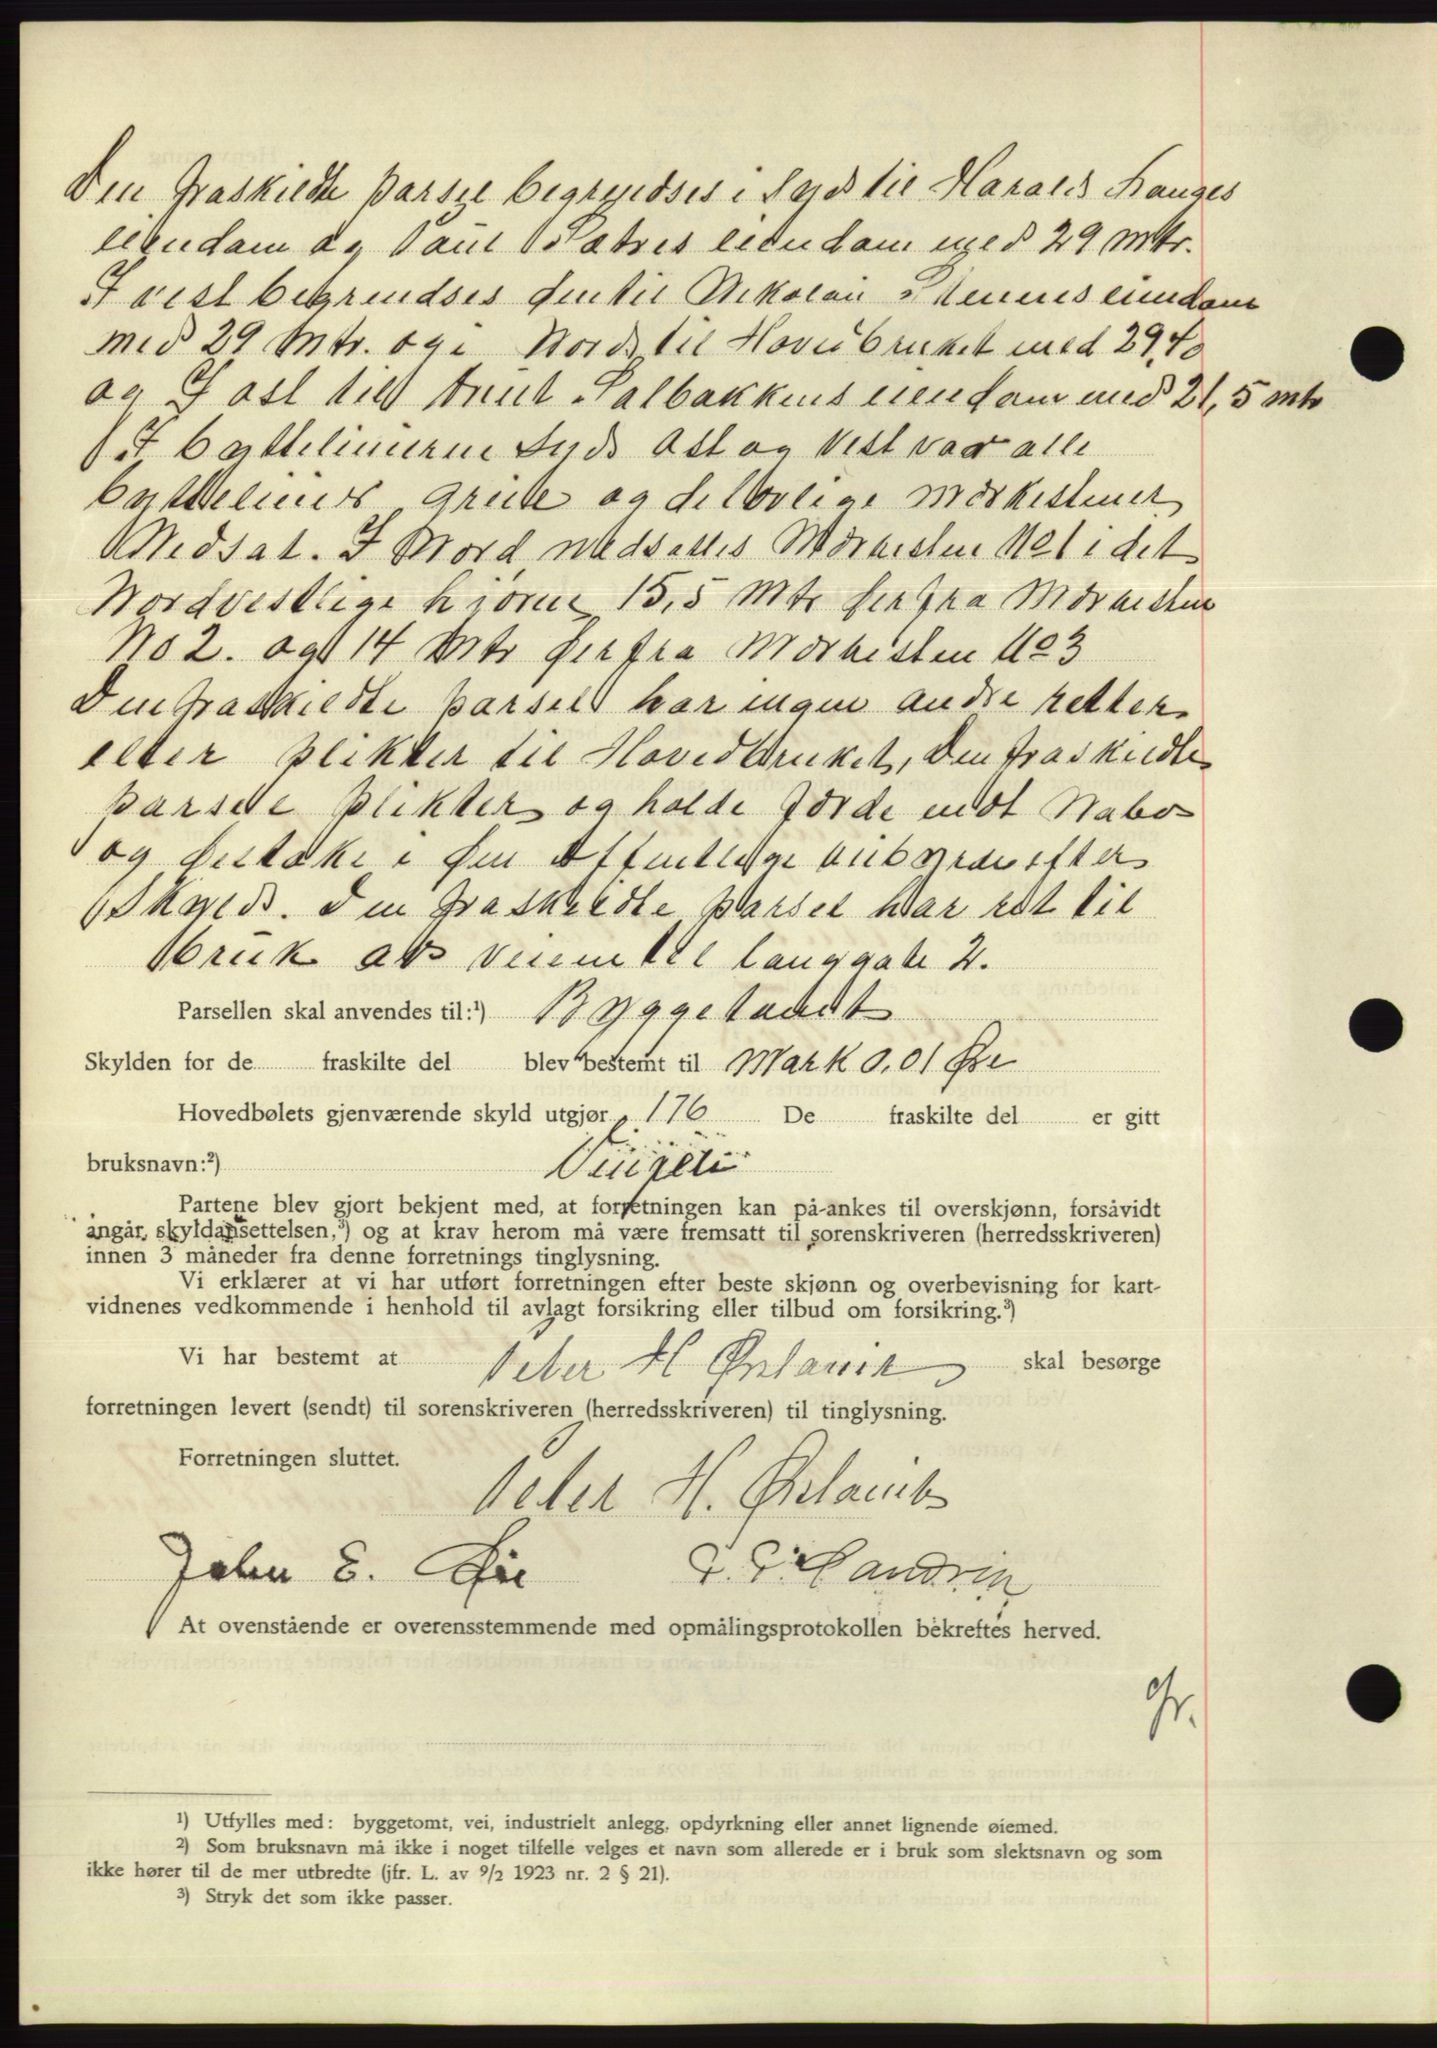 Den fraskildte parsel begrendses i Syd til Harald Hauges
eiendom og Paul Sætres eiendom med 29 mtr.
I vest begrendses den til Nikolai eiendom
med 29 Mtr. og i Nord til Hovedbruket med 29,40
og I ost til Knut Dalbakkens eiendom med 21,5 mtr
I byttelinierne Syd Ost og Vest var alle
byttelinier og delovlige merkestener
Nedsat. I Nord nedsattes Mærkesten No 1 i det
Nordvestlige hjørne 15,5 Mtr derfra Mærkesten
No 2. og 14 Mtr derfra Mærkesten No 3
Den fraskildte parsel har ingen andre retter
eller plikter til Hovedbruket, Den fraskildte
parsel plikter og holde Jærde mot Nabo
og deltake i den offentlige utbyrde efter
Skyld. Den fraskildte parsel har ret til
bruk av veien til langgate 2.
Parsellen skal anvendes til:¹) Byggetomt
Skylden for de fraskilte del blev bestemt til Mark 0,01 Øre
Hovedbølets gjenværende skyld utgjør 176 De fraskilte del er gitt
bruksnavn:²)
Partene blev gjort bekjent med, at forretningen kan på-ankes til overskjønn, forsåvidt
angår skyldansettelsen,³) og at krav herom må være fremsatt til sorenskriveren (herredsskriveren)
innen 3 måneder fra denne forretnings tinglysning.
Vi erklærer at vi har utført forretningen efter beste skjønn og overbevisning for kart-
vidnenes vedkommende i henhold til avlagt forsikring eller tilbud om forsikring.³)
Vi har bestemt at Peter H Ørslavik skal besørge
forretningen levert (sendt) til sorenskriveren (herredsskriveren) til tinglysning.
Forretningen sluttet.
Peter H. Ørslavik
John E. Øie
At ovenstående er overensstemmende med opmålingsprotokollen bekreftes herved.
¹) Utfylles med: byggetomt, vei, industrielt anlegg, opdyrkning eller annet lignende øiemed.
²) Som bruksnavn må ikke i noget tilfelle velges et navn som allerede er i bruk som slektsnavn og som
ikke hører til de mer utbredte (jfr. L. av 9/2 1923 nr. 2 § 21).
³) Stryk det som ikke passer.